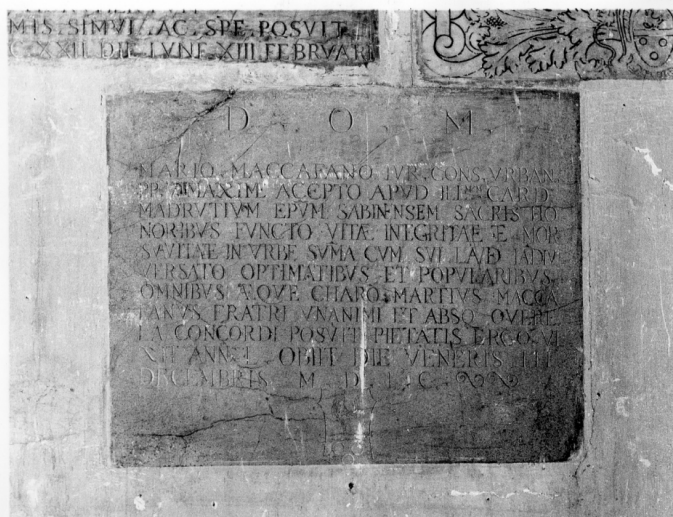 MIS. SIMVL. AC. SPE. POSVIT
C. XXII. DIE. LVNE. XIII FEBRVARI
D. O. M.
MARIO MACCARANO IVR. CONS. VRBAN.
MAXIME ACEPTO APVD ILL CARD
MADRVTIVM EPVM SABINENSEM SACRIS HO
NORIBVS FVNCTO VITÆ INTEGRITAE E MOR
SVAVITAE IN VRBE SVMA CVM SVI LAVD
VERSATO OPTIMATIBVS ET POPVLARIBVS
OMNIBVS CHARO MARTIVS MACCA
RANVS FRATRI VNANIMI ET ABSQ. QVERE
LA CONCORDI POSVIT PIETATIS ERGO VI
XIT ANN. L OBIIT DIE VENERIS III
DECEMBRIS M D I C